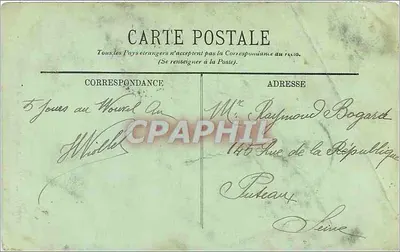 CARTE POSTALE
Tous les Pays étrangers n'acceptent pas la Correspondance au recto.
(Se renseigner à la Poste).
CORRESPONDANCE
ADRESSE
5 Jours au Nouvel An
Mr Raymond Bogard
CPAPHIL
145 Rue de la République
Puteaux
Seine